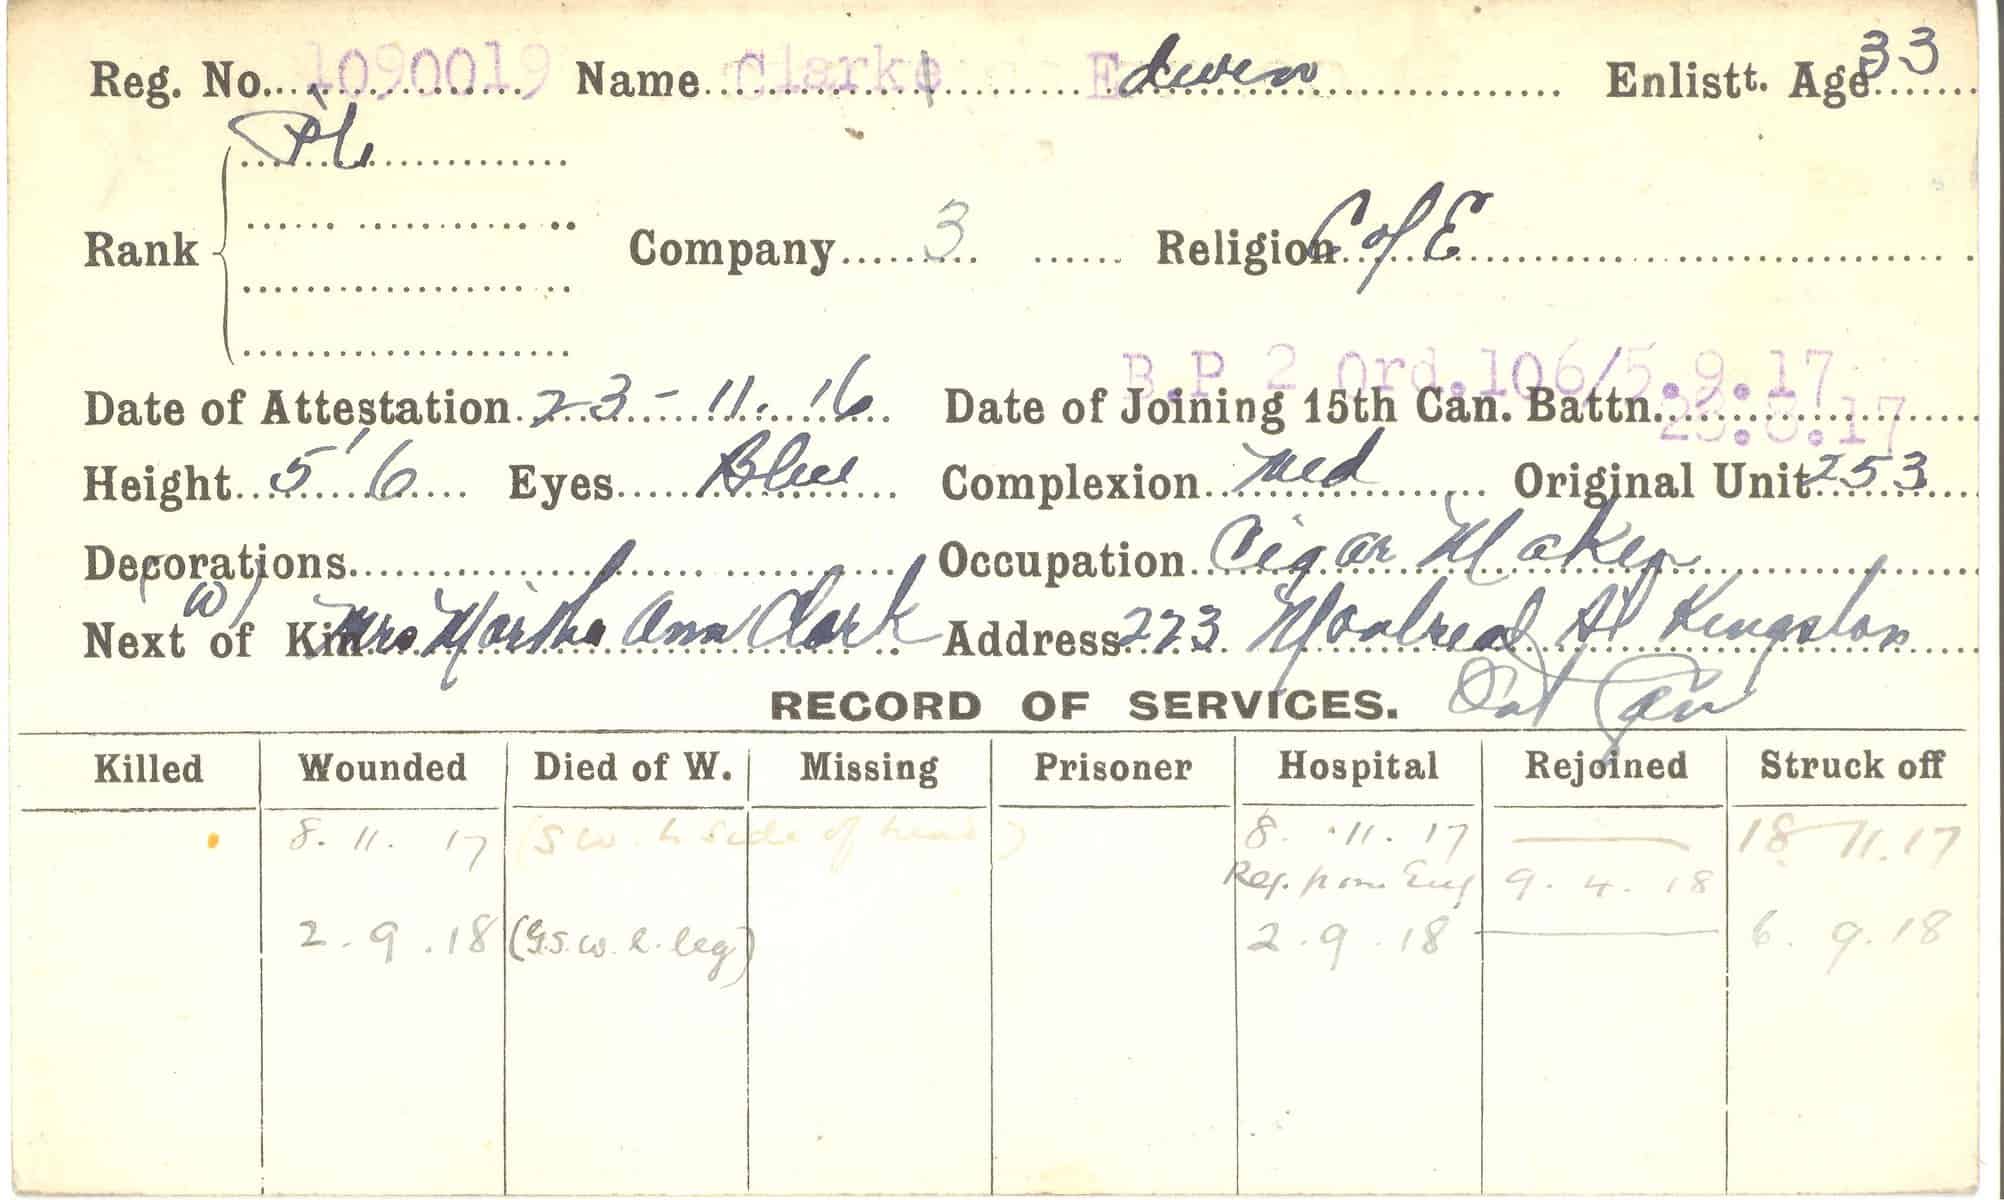 Reg. No. 1090019 Name Clark E Ewen Enlistt. Age 33
Pte
Rank Company 3 Religion C of E
B.P 2 Ord.106/5.9.17
Date of Attestation 23-11.16 Date of Joining 15th Can. Battn. 17
Height 5'6 Eyes Blue Complexion Med Original Unit 253
Decorations Occupation Cigar Maker
(W)
Next of Kin Mrs Martha Ann Clark Address 223 Montreal St Kingston
Ont Can
RECORD OF SERVICES.
Killed Wounded Died of W. Missing Prisoner Hospital Rejoined Struck off
8.11.17 (S.W. L side of head) 8.11.17 18 11.17
Rej. from Eng 9.4.18
2.9.18 (G.S.W. L. leg) 2.9.18 6.9.18